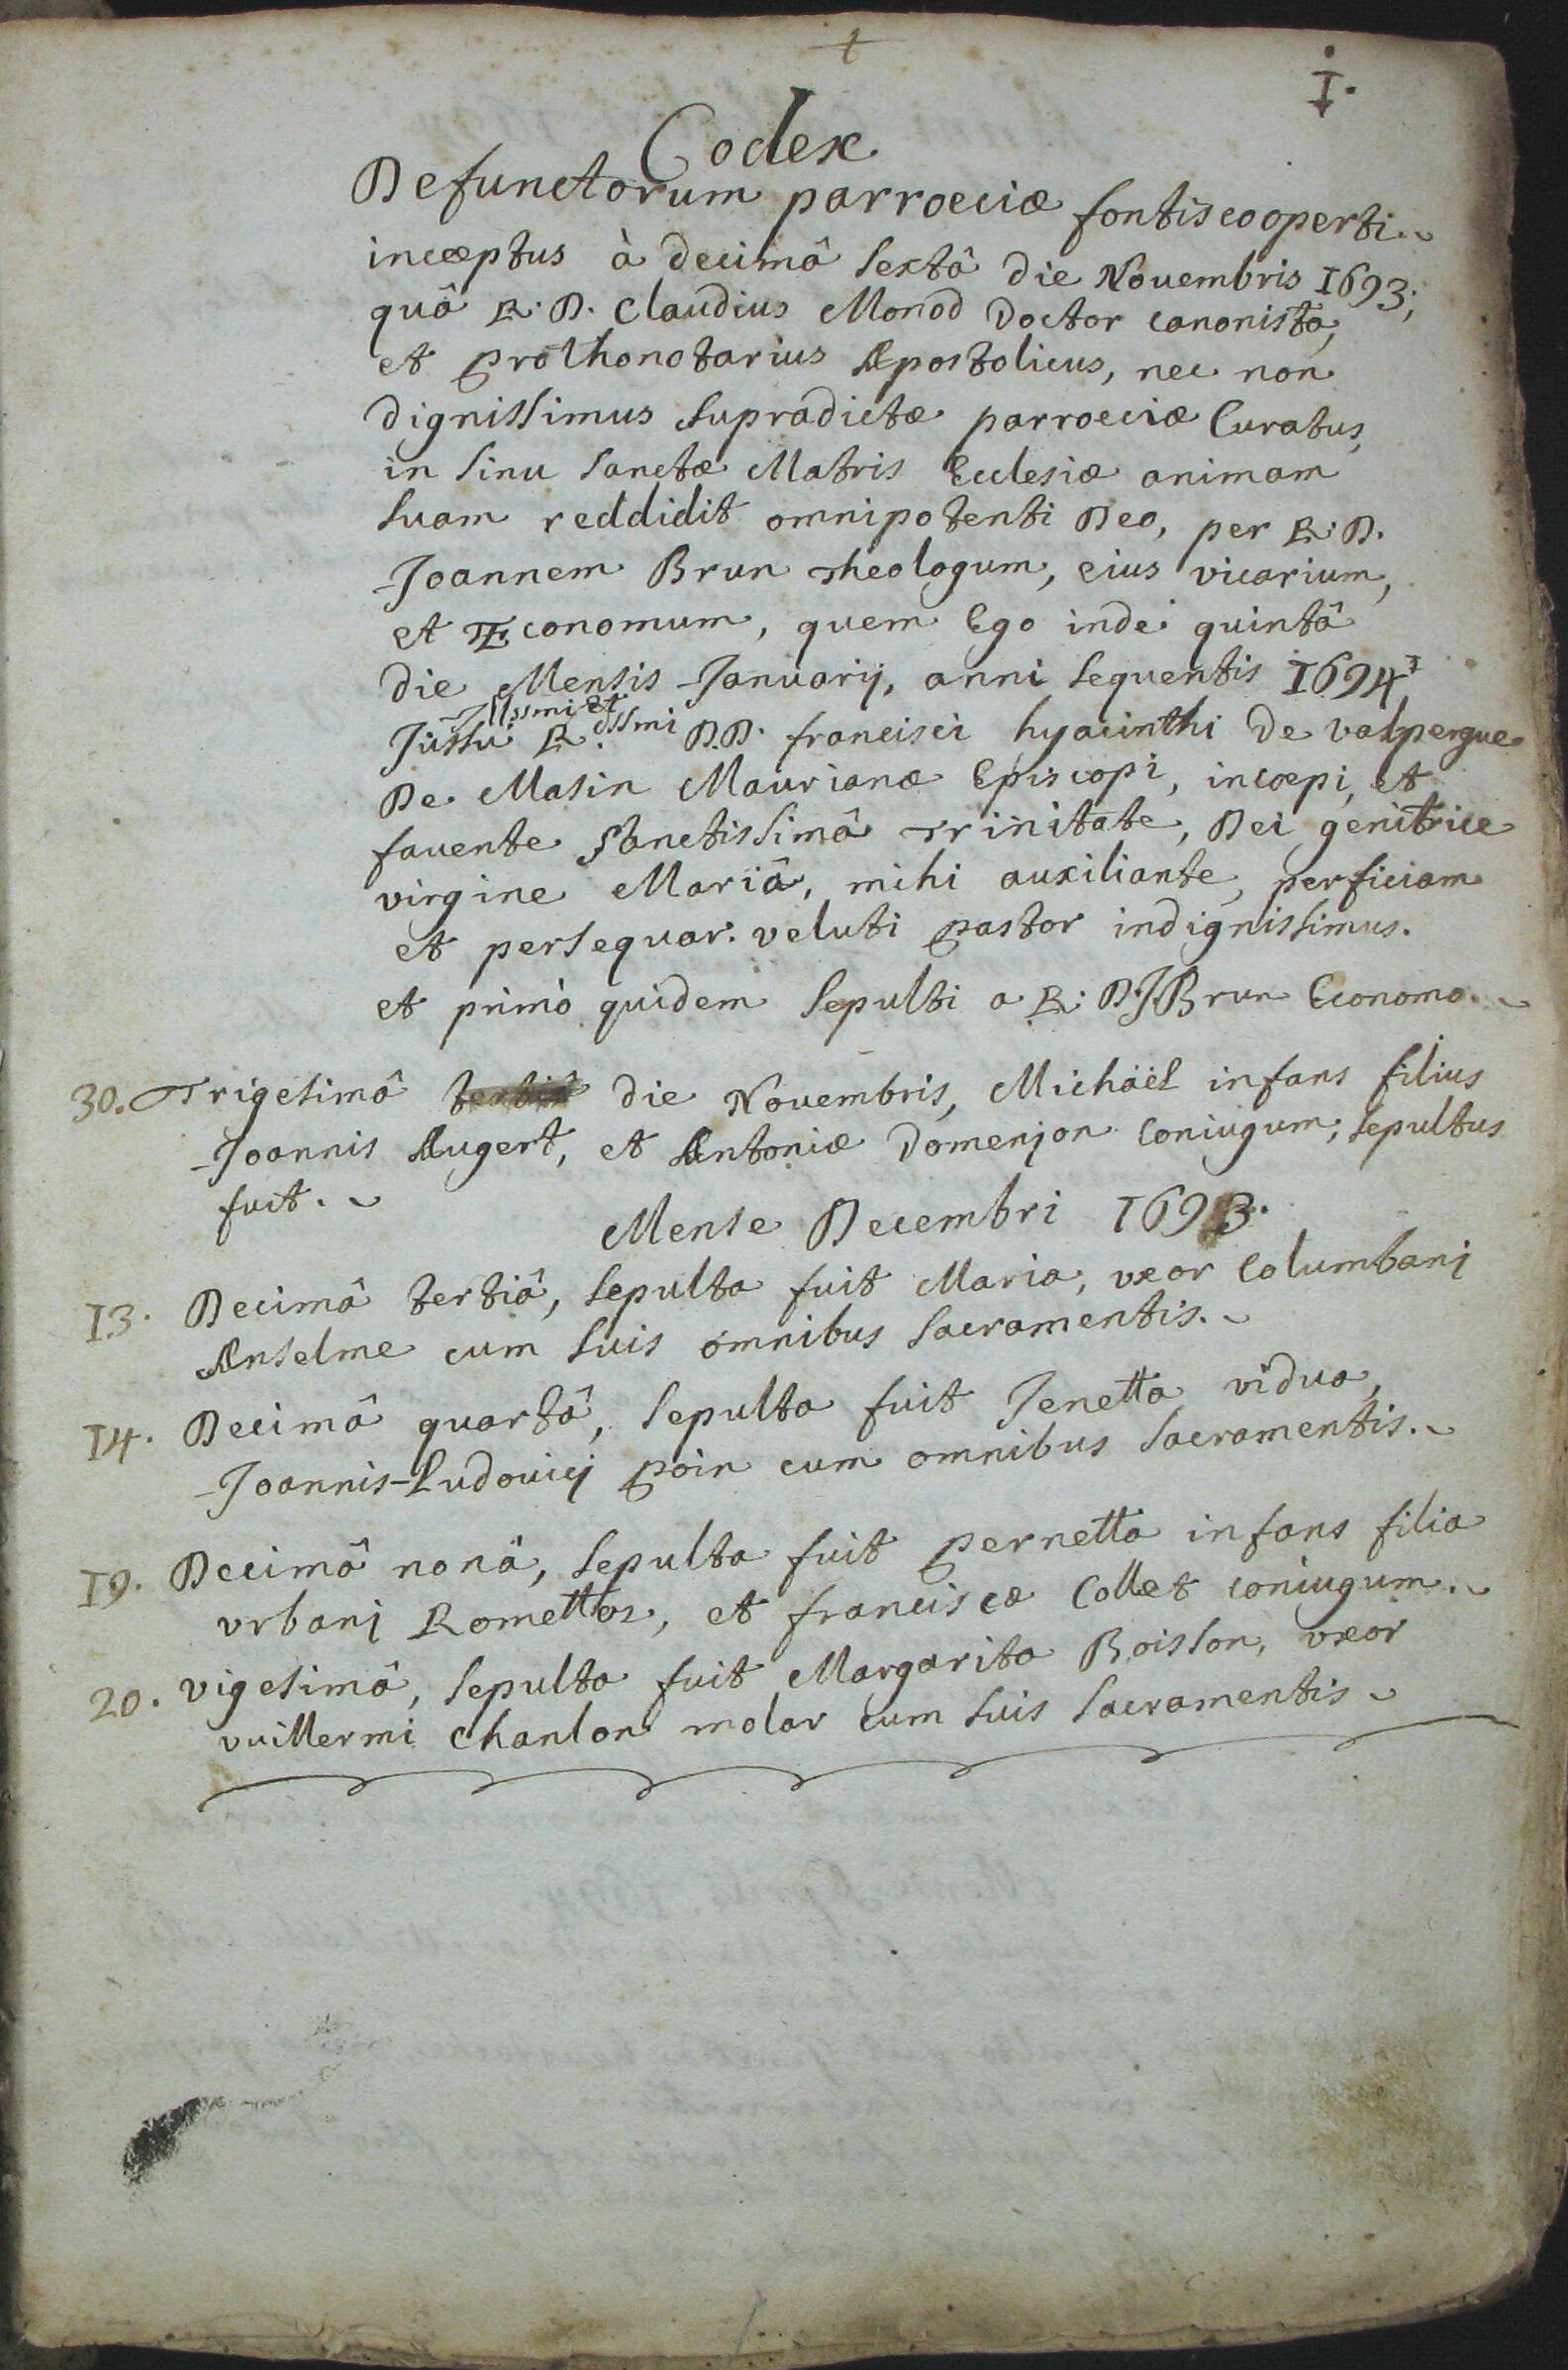 +
I.
Codex
Defunctorum parroeciæ fontiscooperti.
incæptus à decimâ sextâ die Novembris 1693;
quâ R. D. Claudius Monod Doctor canonista,
et Prothonotarius Apostolicus, nec non
dignissimus supradictæ parroeciæ Curatus,
in sinu sanctæ Matris Ecclesiæ animam
suam reddidit omnipotenti Deo, per R. D.
Joannem Brun Theologum, eius vicarium,
et Œconomum, quem Ego inde quintâ
die Mensis Januarij, anni sequentis 1694
Illssmi et
Jussu R.dssmi D.D. francisci hyacinthi De valpergue
De Masin Maurianæ Episcopi, incœpi, et
favente sanctissimâ Trinitate, Dei genitrice
virgine Mariâ, mihi auxiliante, perficiam
et persequar. veluti pastor indignissimus.
et primò quidem sepulti a R. D. J. Brun Economo.
30. Trigesimâ die Novembris, Michäel infans filius
Joannis Augert, et Antoniæ Domenjon Coniugum, sepultus
fuit.
Mense Decembri 1693.
13. Decimâ tertiâ, sepulta fuit Maria, uxor Columbanj
Anselme cum suis omnibus sacramentis.
14. Decimâ quartâ, sepulta fuit Jenetta vidua,
Joannis-Ludovicj Poin cum omnibus sacramentis.
19. Decimâ nonâ, sepulta fuit pernetta infans filia
vrbanj Romettoz, et franciscæ Collet coniugum.
20. vigesimâ, sepulta fuit Margarita Boisson, vxor
vuillermi Chanlon molar cum suis sacramentis